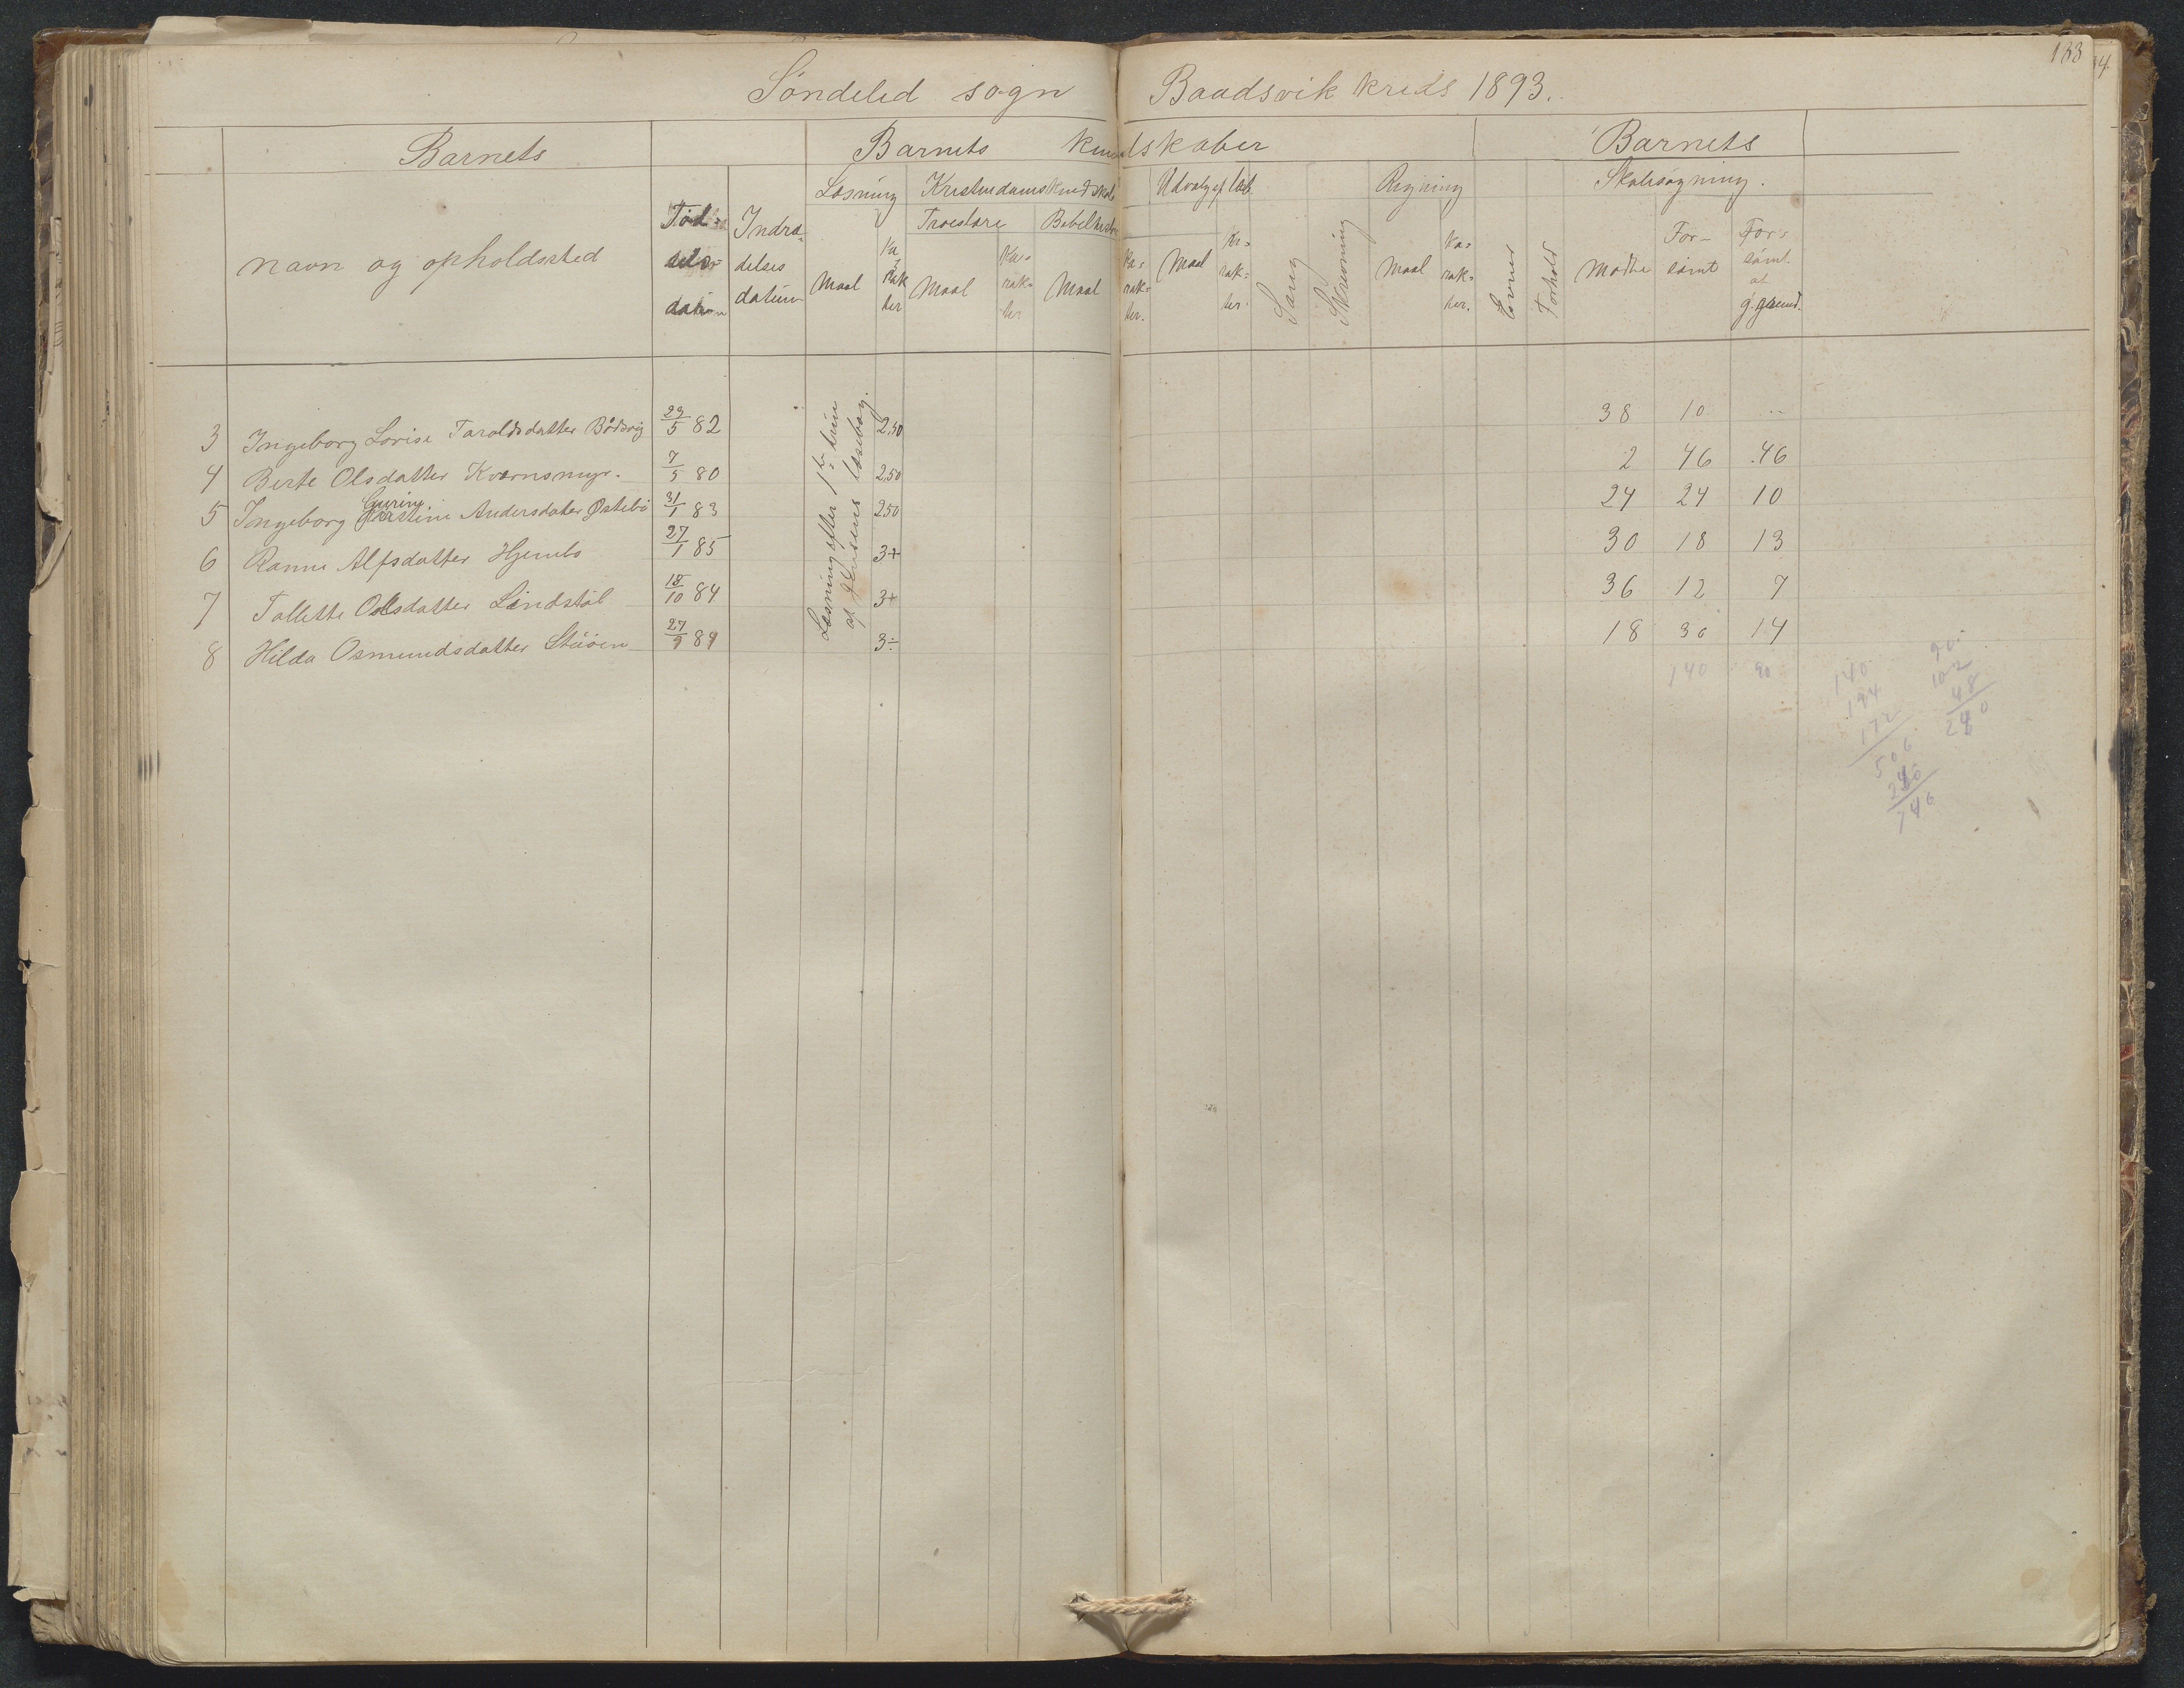 133
Søndeled sogn Baadsvik kreds 1893.
Barnets Barnets kundskaber Barnets
Læsning Kristendomskundskab Udvalg af læb. Regning Skolesøgning.
navn og opholdssted Fødselsdatum Indtrædelsesdatum Maal Karakter Troeslære Maal Karakter Bibelhistorie Maal Karakter. Maal Karakter. Sang Skrivning Maal Karakter. Evner Forhold Mødte Forsømt Forsømt af g. grund.
Læsning efter 1ste trin
af Jensens læsebog.
3 Ingeborg Lovise Taraldsdatter Bådsvig 29/5 82 2,50 38 10 ..
4 Berte Olsdatter Kvernsmyr. 7/5 80 2,50 2 46 46
5 Ingeborg Gurine Andersdater Østebø 31/1 83 250 24 24 10
6 Ranni Alfsdatter Hjembo 27/1 85 3+ 30 18 13
7 Tallette Olsdatter Lindstøl 18/10 84 3+ 36 12 7
8 Hilda Osmundsdatter Stuøen 27/9 84 3÷ 18 30 14
140 90
140
194
172
506
240
746
90
102
48
240